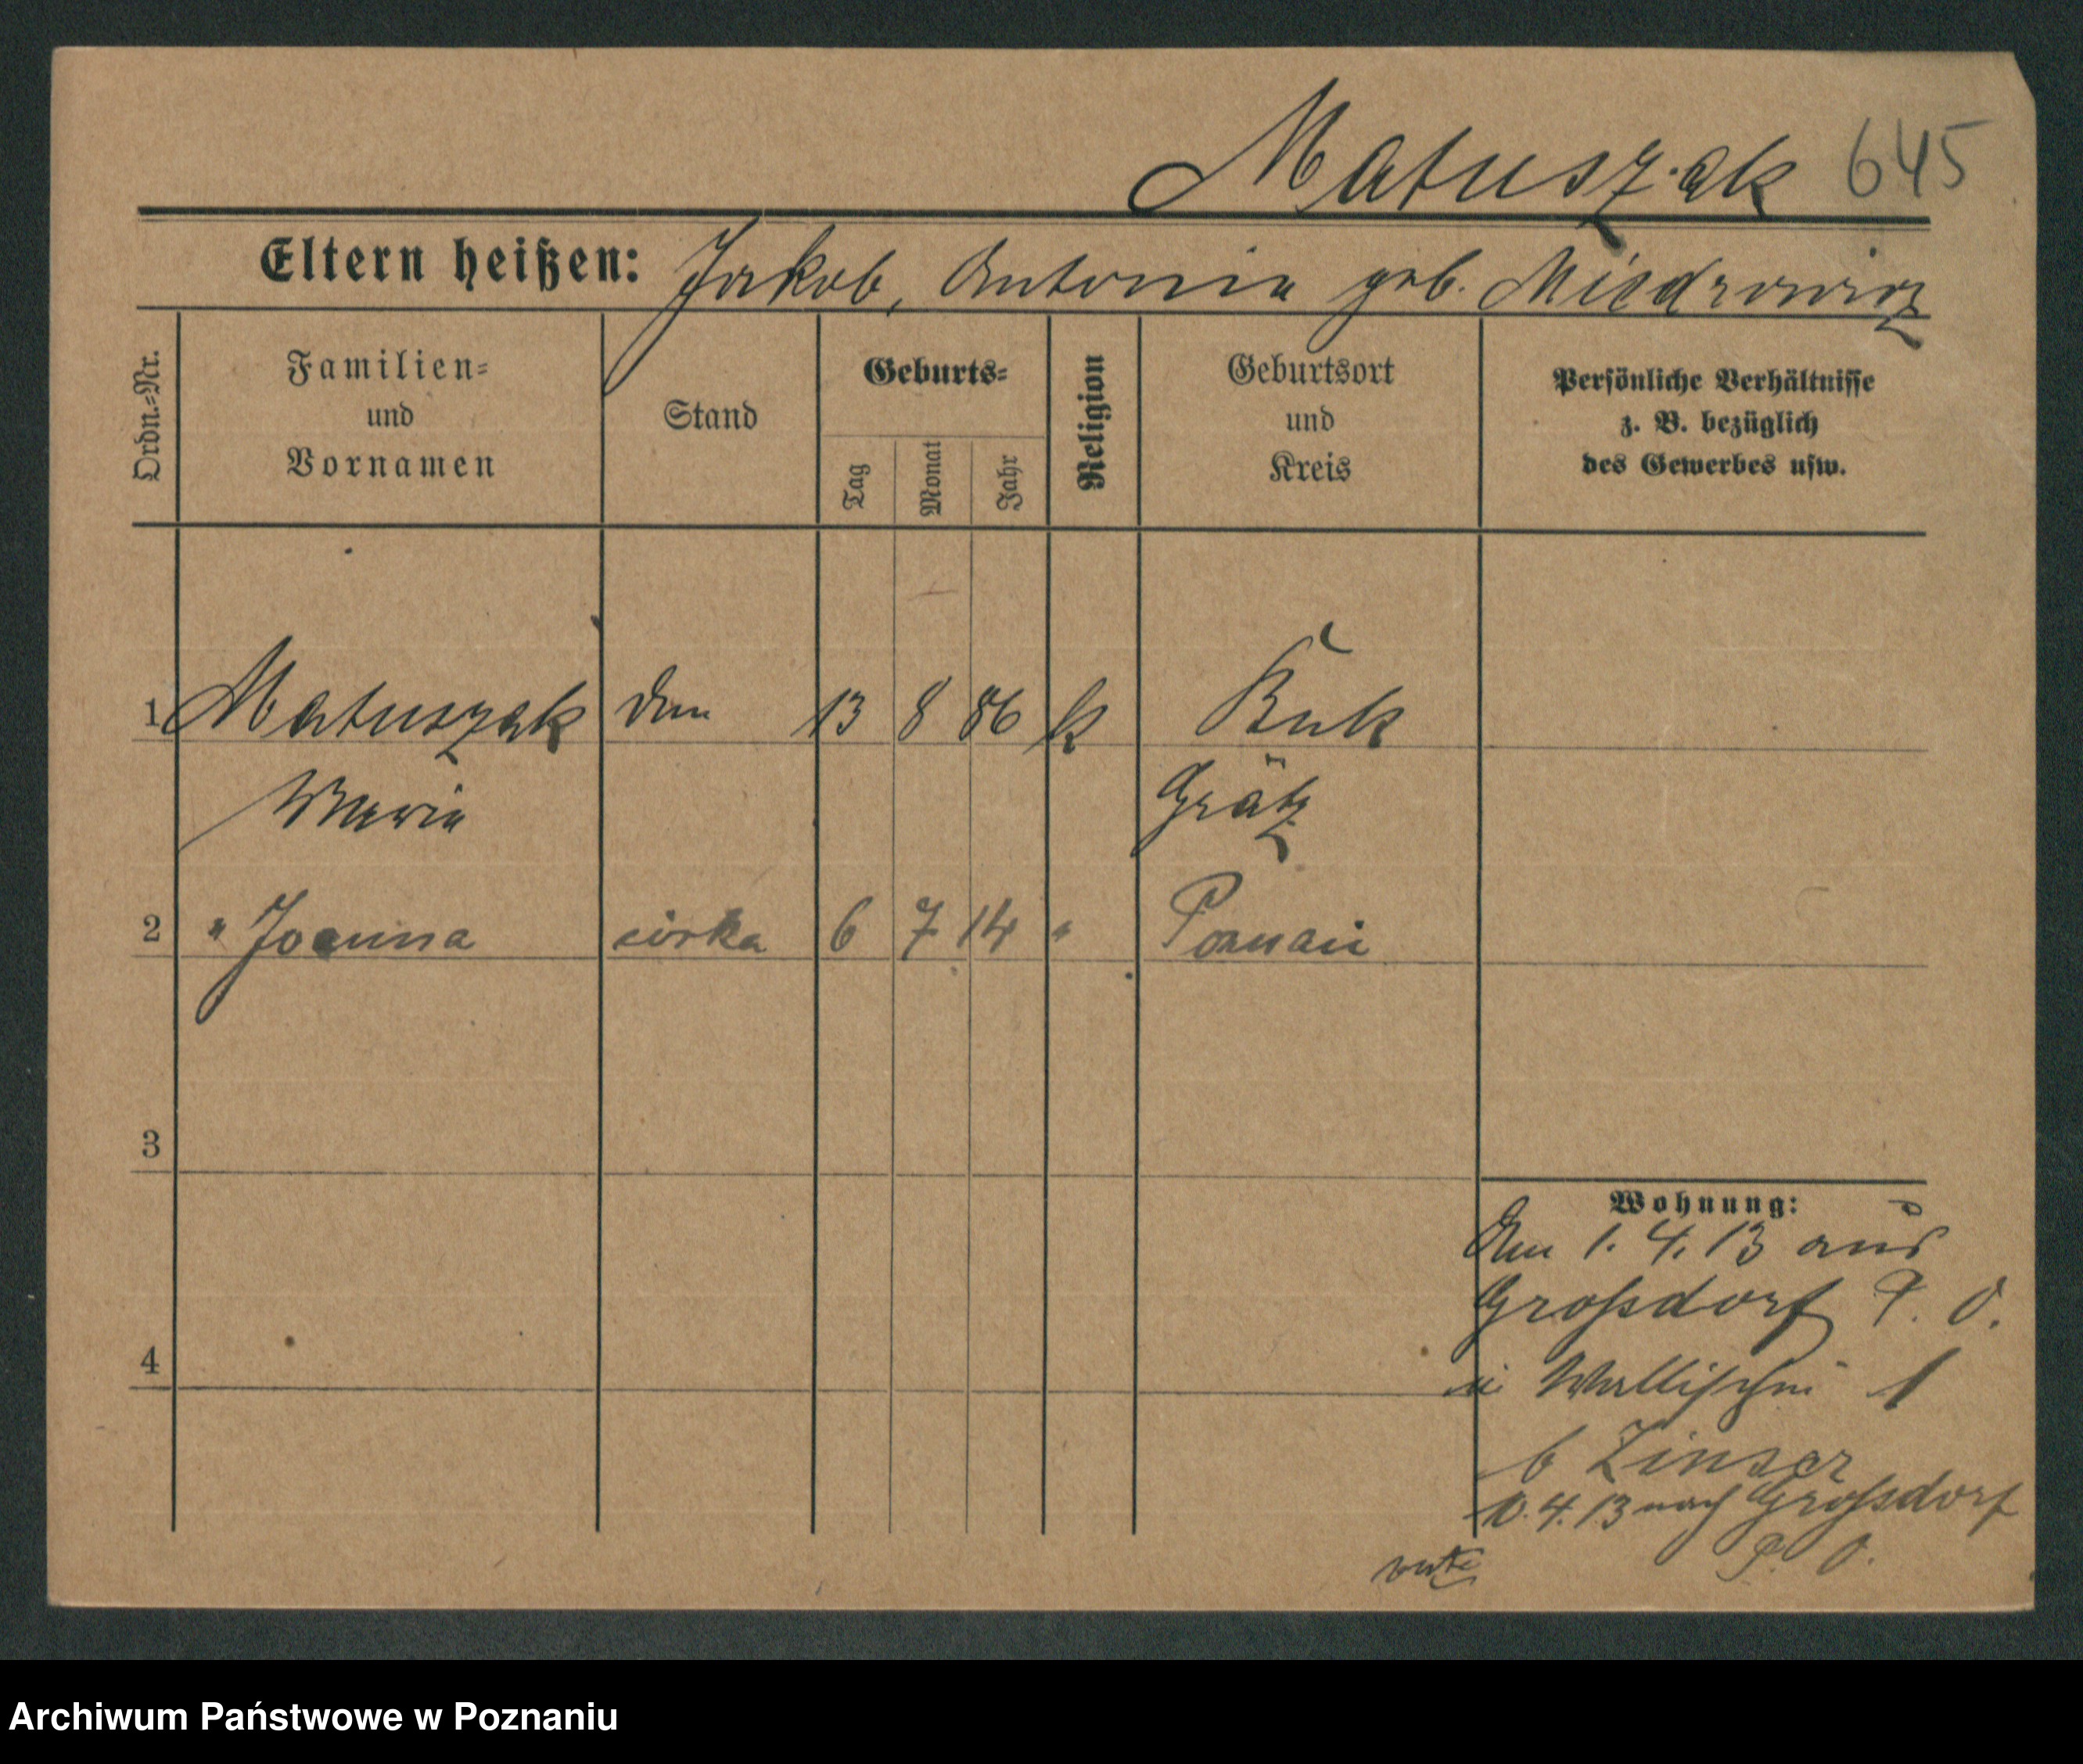 Matuszak 645
Eltern heißen: Jakob, Antonia geb. Miedrowicz
Ordn.-Nr.
Familien-
und
Vornamen
Stand
Geburts-
Tag
Monat
Jahr
Religion
Geburtsort
und
Kreis
Persönliche Verhältnisse
z. B. bezüglich
des Gewerbes usw.
1 Matuszak 13 8 86 k Buk
Maria Grätz
2 " Joanna córka 6 7 14 " Poznań
3
4
Wohnung:
Am 1. 4. 13 aus
Großdorf P. O.
in Wallischei 1
b Zinser
10. 4. 13 nach Großdorf
P. O.
Archiwum Państwowe w Poznaniu